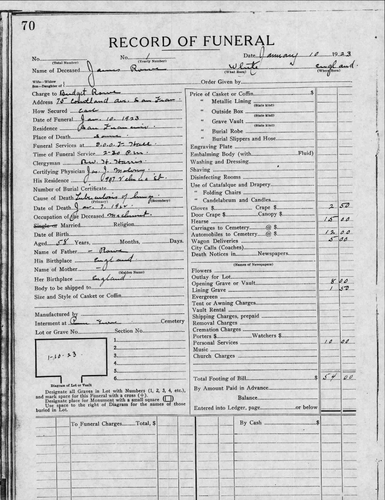 70
RECORD OF FUNERAL
No. No. 1 Date January 10 1923
(Total Number) (Yearly Number)
Name of Deceased James Rowe White England
(What Race) (Where Born)
Order Given by
Charge to Bridget Rowe
Address 75 Courtland Ave. San Fran.
How Secured Call
Date of Funeral Jan. 10. 1923.
Residence San Francisco
Place of Death Same
Funeral Services at I.O.O.F. Hall
Time of Funeral Service 2:30 P.M.
Clergyman Rev. H. Harris
Certifying Physician
His Residence
Number of Burial Certificate
Cause of Death Tuberculosis of Lungs
Date of Death Jan. 7.
Occupation of the Deceased Machinist
Single or Married Religion
Date of Birth
Aged 58 Years, Months, Days.
Name of Father - Rowe
His Birthplace England
Name of Mother -
(Maiden Name)
Her Birthplace England
Body to be shipped to
Size and Style of Casket or Coffin
Manufactured by
Interment at Cemetery
Lot or Grave No. Section No.
1-10-23
1
2
3
4
5
6
Diagram of Lot or Vault
Designate all Graves in Lot with Numbers (1, 2, 3, 4, etc.),
and mark space for this Funeral with a cross (+).
Designate place for Monument with a small square □
Use space to right of Diagram for the names of those
buried in Lot.
Price of Casket or Coffin
" Metallic Lining
(State Kind)
" Outside Box
(State Kind)
" Grave Vault
(State Kind)
" Burial Robe
(State Kind)
" Burial Slippers and Hose
Engraving Plate
Embalming Body (with Fluid)
Washing and Dressing
Shaving
Disinfecting Rooms
Use of Catafalque and Drapery
" Folding Chairs
" Candelabrum and Candles
Gloves $ Crape $ 2 50
Door Crape $ Canopy $
Hearse 15 00
Carriages to Cemetery @
Automobiles to Cemetery @ 12 00
Wagon Deliveries 5 00
City Calls—Coaches
Death Notices in Newspapers
(Names of Newspapers)
Flowers
Outlay for Lot
Opening Grave or Vault 8 00
Lining Grave 1 50
Evergreen
Tent or Awning Charges
Vault Rental
Shipping Charges, prepaid
Removal Charges
Cremation Charges
Porters $ Watchers $
Personal Services 10 00
Music
Church Charges
Total Footing of Bill $ 54 00
By Amount Paid in Advance
Balance
Entered into Ledger, page or below
To Funeral Charges, Total $
By Cash $